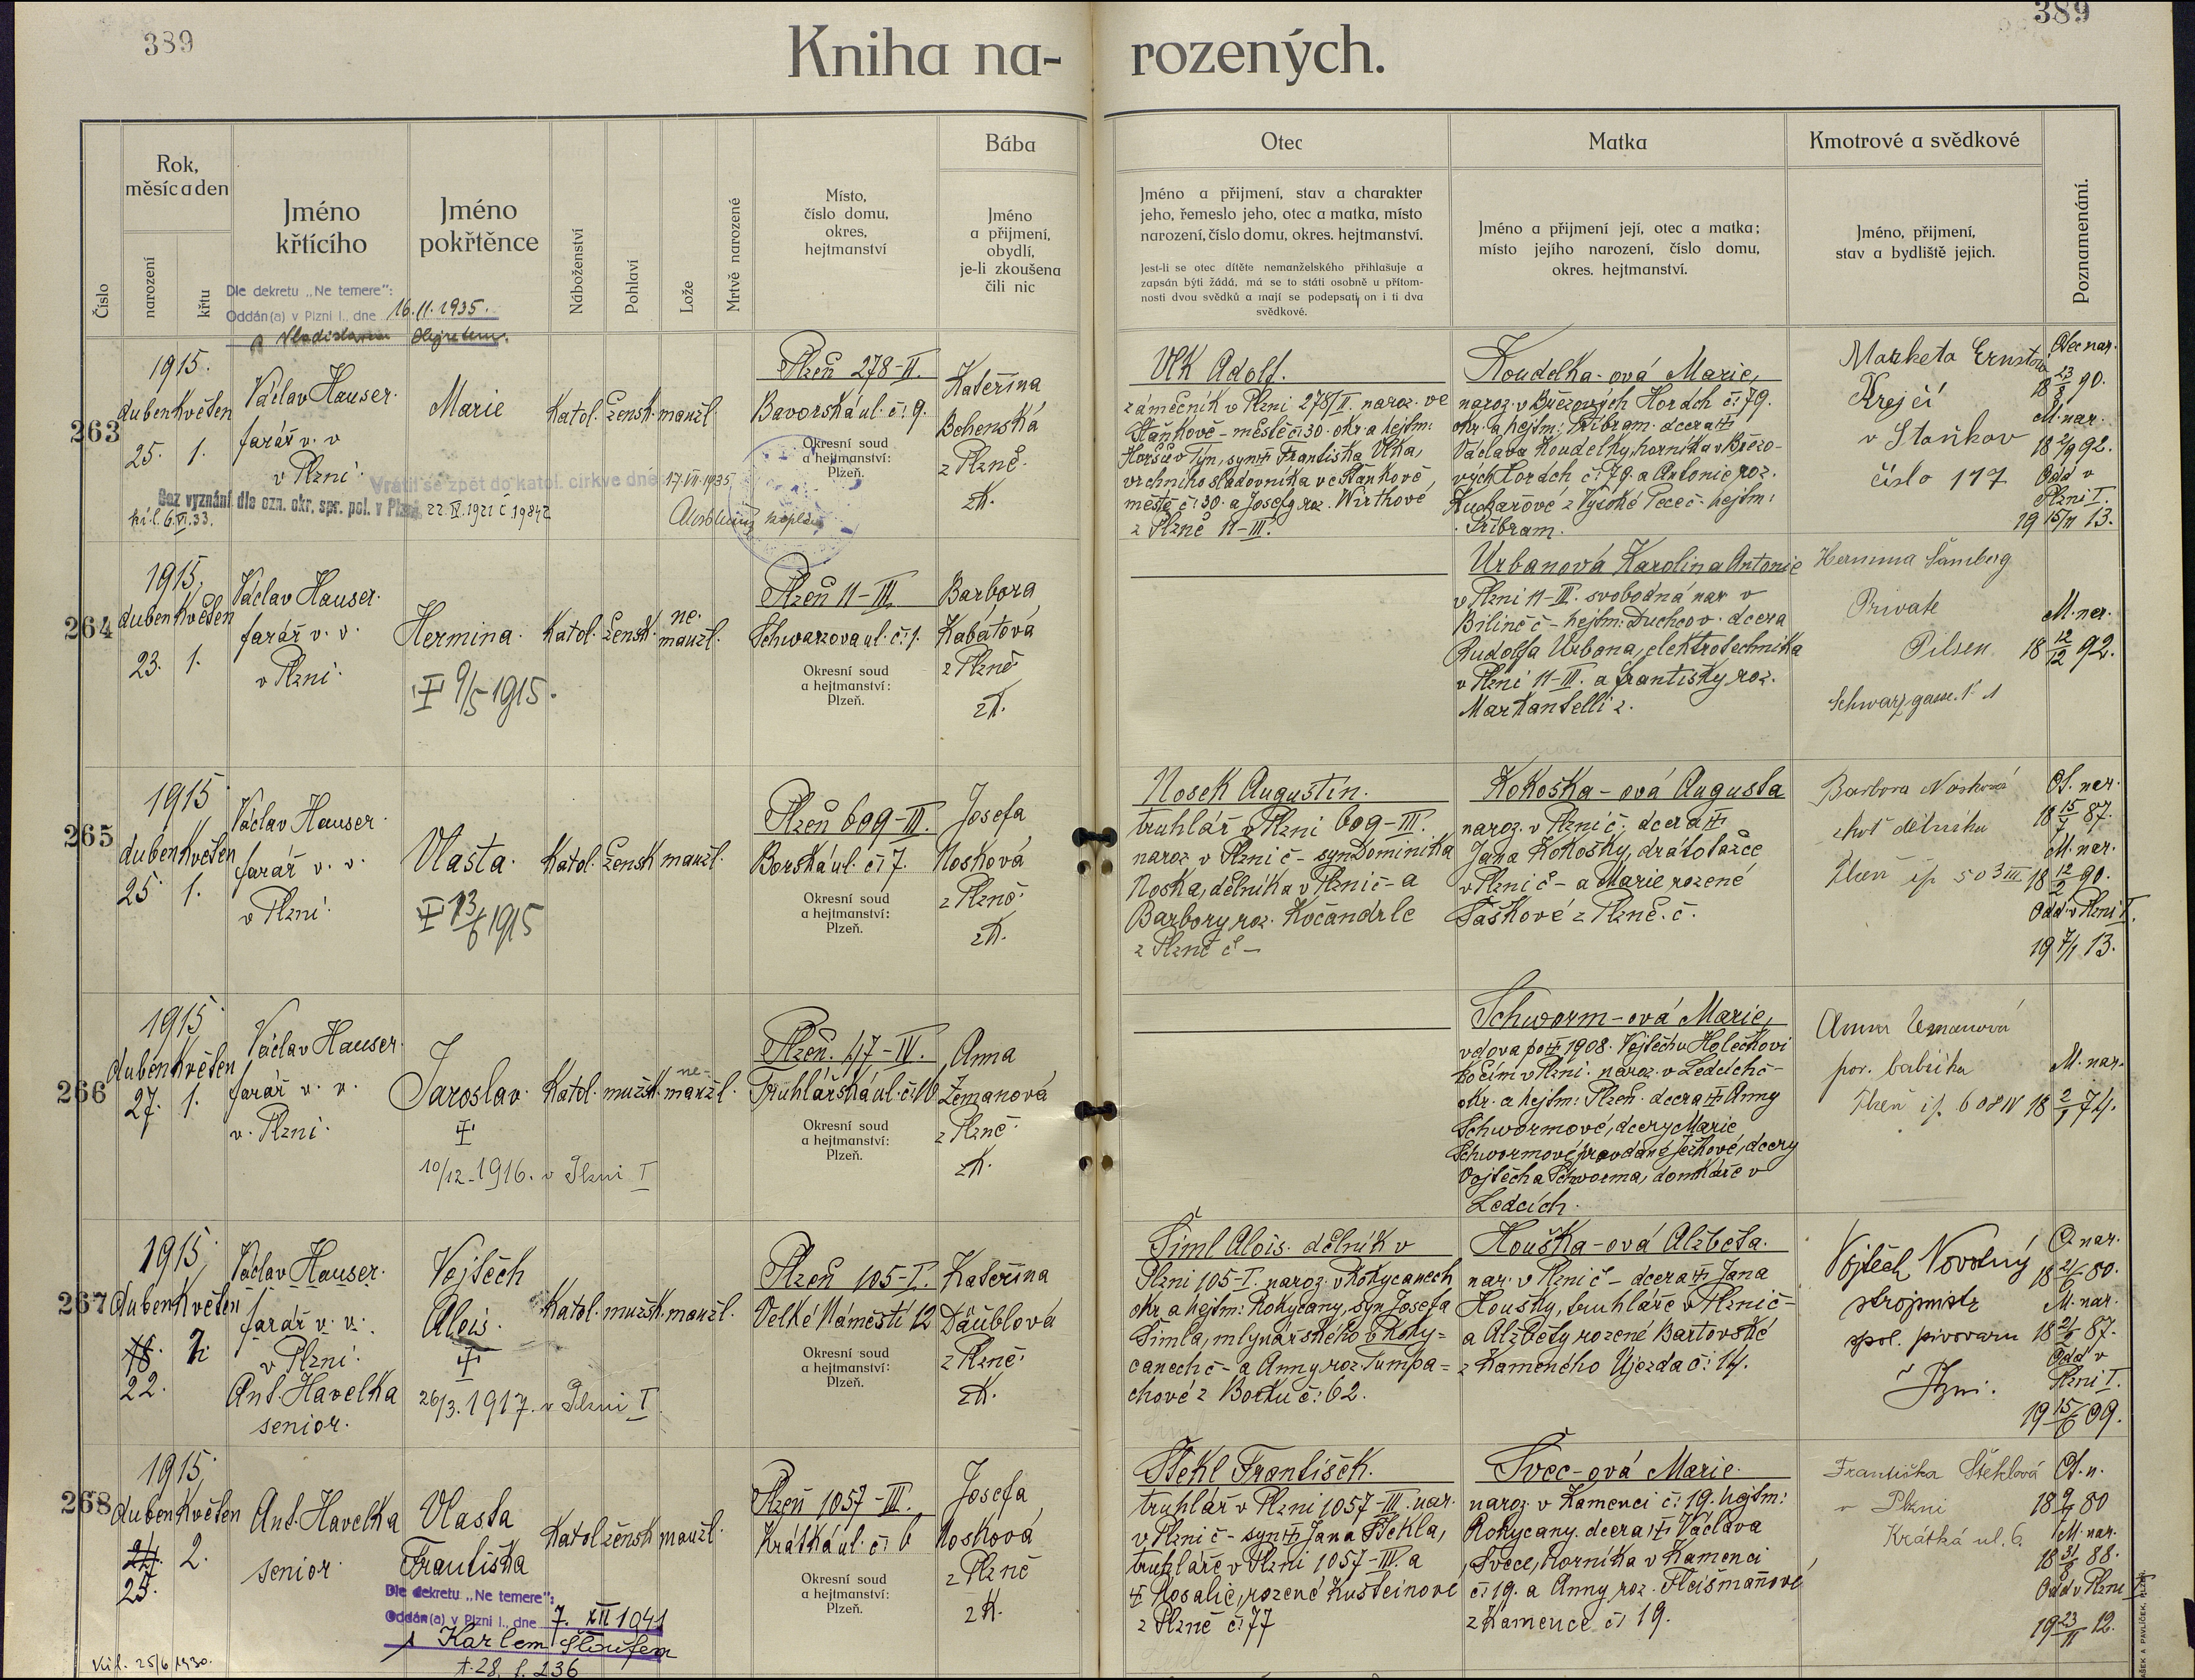 389
389
Kniha na-rozených.
Číslo
Rok, měsíc a den
narození
křtu
Jméno křtícího
Jméno pokřtěnce
Náboženství
Pohlaví
Lože
Mrtvě narozené
Místo, číslo domu, okres, hejtmanství
Bába
Jméno a přijmení, obydlí, je-li zkoušena čili nic
Otec
Jméno a přijmení, stav a charakter
jeho, řemeslo jeho, otec a matka, místo
narození, číslo domu, okres. hejtmanství.
Jest-li se otec dítěte nemanželského přihlašuje a
zapsán býti žádá, má se to státi osobně u přítom-
nosti dvou svědků a mají se podepsati on i ti dva
svědkové.
Matka
Jméno a přijmení její, otec a matka;
místo jejího narození, číslo domu,
okres. hejtmanství.
Kmotrové a svědkové
Jméno, přijmení,
stav a bydliště jejich.
Poznamenání.
Dle dekretu „Ne temere":
Oddán(a) v Plzni I., dne 16.11.1935.
263
1915.
duben Květen
25. 1.
Václav Hauser.
farář v. v.
v Plzni.
Marie
Katol. žensk. manžl.
Plzeň 278-II.
Bavorská ul. č: 9.
Okresní soud
a hejtmanství:
Plzeň.
Kateřina
Bohenská
z Plzně.
zk.
Bez vyznání dle ozn. okr. spr. pol. v Plzni 22.IV.1921 č 19842
Vrátil se zpět do katol. církve dne 17.VII.1935
Vlk Adolf.
zámečník v Plzni 278/II. naroz. ve
Staňkově - městě č: 30. okr. a hejtm:
Horšův Týn, syn Františka Vlka,
vrchního sladovníka ve Staňkově,
městě č: 30. a Josefy roz. Wirthové
z Plzně 11-III.
Koudelka-ová Marie,
naroz. v Březových Horách č: 79.
okr. a hejtm: Příbram. dcera
Václava Koudelky, horníka v Březo-
vých Horách č: 79. a Antonie roz.
Kuchařové z Vysoké Pece č- hejtm:
Příbram.
Marketa Ernstová
Krejčí
v Staňkov
číslo 117
Otec nar.
18 23/8 90.
M. nar.
18 2/9 92.
Odd v
Plzni I.
19 15/11 13.
264
1915.
duben Květen
23. 1.
Václav Hauser.
farář v. v.
v Plzni.
Hermina.
9/5 1915.
Katol. žensk. ne-manžl.
Plzeň 11-III.
Schwarzova ul. č: 1.
Okresní soud
a hejtmanství:
Plzeň.
Barbora
Kabátová
z Plzně
zk.
Urbanová Karolina Antonie
v Plzni 11-III. svobodná nar v
Bílině č - hejtm: Duchcov. dcera
Rudolfa Urbana, elektrotechnika
v Plzni 11-III. a Františky roz.
Markantelli z.
Hermina Šamberg
Private
Pilsen
Schwarzgasse. 1
M. nar.
18 12/12 92.
265
1915
duben Květen
25. 1.
Václav Hauser.
farář v. v.
v Plzni.
Vlasta.
13/6 1915
Katol. žensk. manžl.
Plzeň 609-III.
Borská ul. č: 7.
Okresní soud
a hejtmanství:
Plzeň.
Josefa
Nosková
z Plzně.
zk.
Nosek Augustin.
truhlář v Plzni 609-III.
naroz v Plzni č - syn Dominika
Noska, dělníka v Plzni č - a
Barbory roz. Kočandrle
z Plzně č -
Kokoška-ová Augusta
naroz. v Plzni č. dcera
Jana Kokošky, drátotažce
v Plzni č - a Marie rozené
Šaškové z Plzně. č.
Barbora Nosková
choť dělníka
Plzeň čp 503 III
Ot. nar.
18 15/7 87.
M. nar.
18 12/2 90.
Odd. v Plzni I.
19 7/1 13.
266
1915
duben Květen
27. 1.
Václav Hauser.
farář v. v.
v. Plzni.
Jaroslav.
10/12. 1916. v Plzni I
Katol. mužsk. ne-manžl.
Plzeň. 47-IV.
Truhlářská ul. č: 10.
Okresní soud
a hejtmanství:
Plzeň.
Anna
Zemanová
z Plzně.
zk.
Schworm-ová Marie,
vdova po 1908. Vojtěchu Holečkovi
kočím v Plzni. naroz. v Ledcích č-
okr. a hejtm: Plzeň. dcera Anny
Schwormové, dcery Marie
Schwormové, provdané Ježkové, dcery
Vojtěcha Schworma, domkáře v
Ledcích.
Anna Zemanová
por. babička
Plzeň čp. 608 IV
M. nar.
18 2/1 74.
267
1915.
duben Květen
18. 2.
22.
Václav Hauser.
farář v. v.
v Plzni.
Ant. Havelka
senior.
Vojtěch
Alois.
26/3. 1917. v Plzni I
Katol. mužsk. manžl.
Plzeň 105-I.
Velké Náměstí 12
Okresní soud
a hejtmanství:
Plzeň.
Kateřina
Däublová
z Plzně.
zk.
Šiml Alois. dělník v
Plzni 105-I. naroz. v Rokycanech
okr. a hejtm: Rokycany, syn Josefa
Šimla, mlynářského v Roky=
canech č - a Anny roz. Tumpa=
chové z Borku č: 62.
Houška-ová Alžběta.
nar. v Plzni č - dcera Jana
Houšky, truhláře v Plzni č-
a Alžběty rozené Bartovské
z Kamenného Újezda č: 14.
Vojtěch Novotný
strojmistr
spol. pivovaru
v Plzni.
O. nar.
18 21/6 80.
M. nar.
18 2/6 87.
Odd v
Plzni I.
19 15/6 09.
268
1915.
duben Květen
24. 2.
25.
Ant. Havelka
senior.
Vlasta
Františka
Katol žensk manžl.
Plzeň 1057-III.
Krátká ul. č: 6
Okresní soud
a hejtmanství:
Plzeň.
Josefa
Nosková
z Plzně
zk.
Dle dekretu „Ne temere":
Oddán(a) v Plzni I., dne 7. XII 1941
s Karlem Sloufem
t. 28. f. 236
Vúl. 25/6 1930.
Štekl František.
truhlář v Plzni 1057-III. nar.
v Plzni č - syn Jana Štekla,
truhláře v Plzni 1057-III. a
Rosalie, rozené Kusteinové
z Plzně č: 77
Švec-ová Marie.
naroz. v Kamenci č: 19. hejtm:
Rokycany. dcera Václava
Švece, horníka v Kamenci
č: 19. a Anny roz. Fleišmanové
z Kamence č: 19.
Františka Šteklová
v Plzni
Krátká ul. 6.
Ot. n.
18 9/7 80
M. nar.
18 31/8 88.
Odd v Plzni I
19 23/11 12.